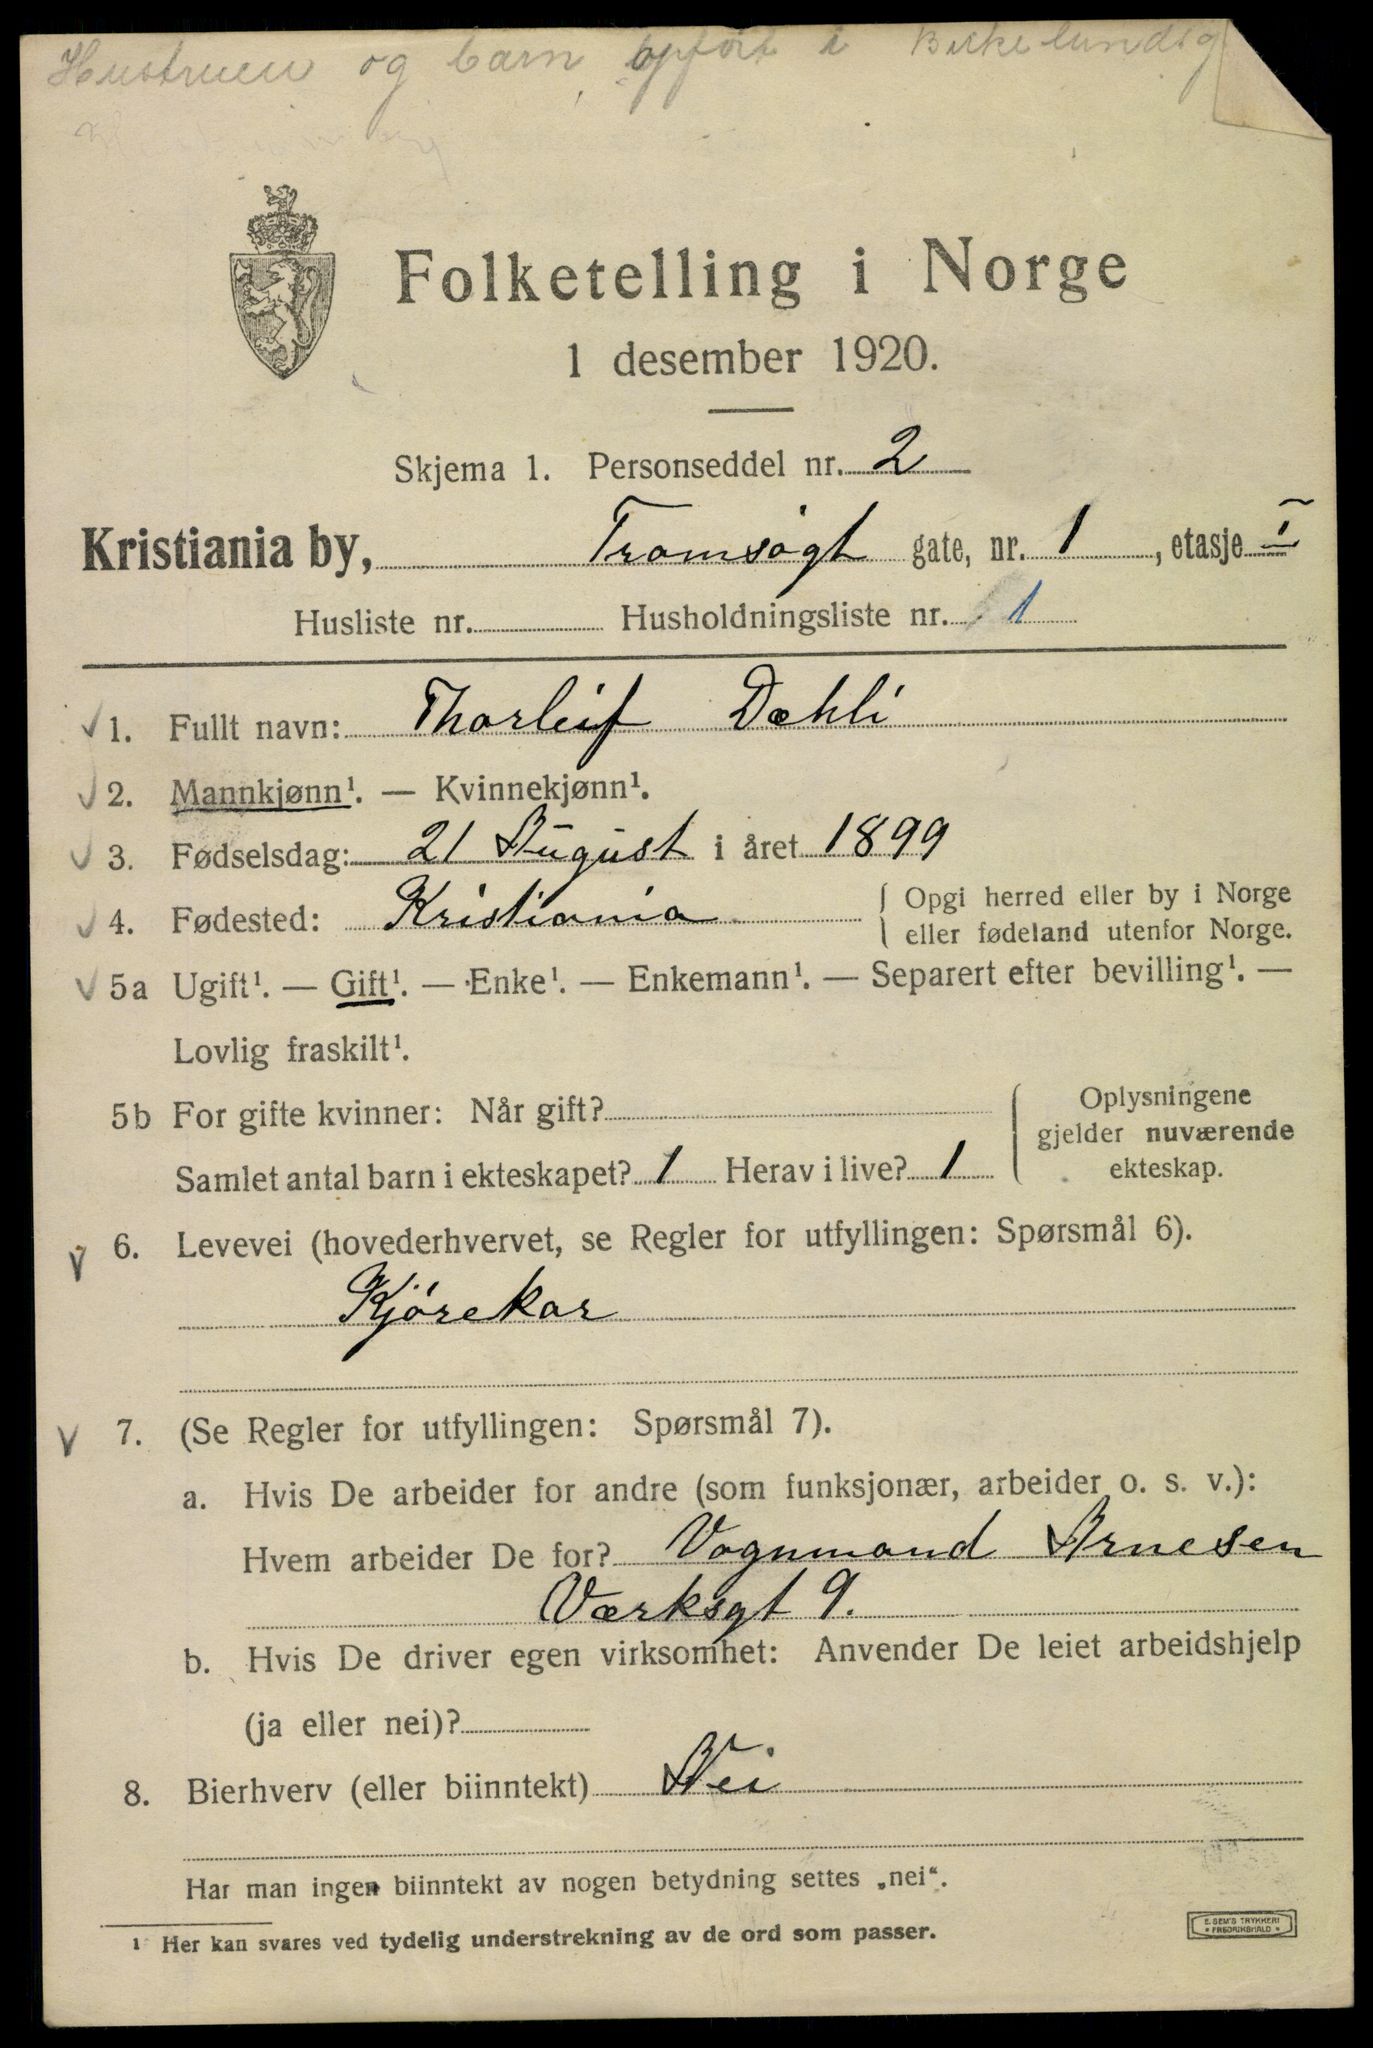 Hustruen og barn opført i Birkelundsg
Folketelling i Norge
1 desember 1920.
Skjema 1. Personseddel nr. 2
Kristiania by, Tromsøgt gate, nr. 1, etasje I
Husliste nr. Husholdningsliste nr. 1
1. Fullt navn: Thorleif Dæhli
2. Mannkjønn¹. — Kvinnekjønn¹.
3. Fødselsdag: 21 August i året 1899
4. Fødested: Kristiania { Opgi herred eller by i Norge
eller fødeland utenfor Norge.
5a Ugift¹. — Gift¹. — Enke¹. — Enkemann¹. — Separert efter bevilling¹. —
Lovlig fraskilt¹.
5b For gifte kvinner: Når gift?
Samlet antal barn i ekteskapet? 1 Herav i live? 1
{ Oplysningene
gjelder nuværende
ekteskap.
6. Levevei (hovederhvervet, se Regler for utfyllingen: Spørsmål 6).
Kjørekar
7. (Se Regler for utfyllingen: Spørsmål 7).
a. Hvis De arbeider for andre (som funksjonær, arbeider o. s. v.):
Hvem arbeider De for? Vognmand Arnesen
Værksgt 9.
b. Hvis De driver egen virksomhet: Anvender De leiet arbeidshjelp
(ja eller nei)?
8. Bierhverv (eller biinntekt) Nei
Har man ingen biinntekt av nogen betydning settes „nei“.
¹ Her kan svares ved tydelig understrekning av de ord som passer.
E. SEM'S TRYKKERI
* FREDRIKSHALD *